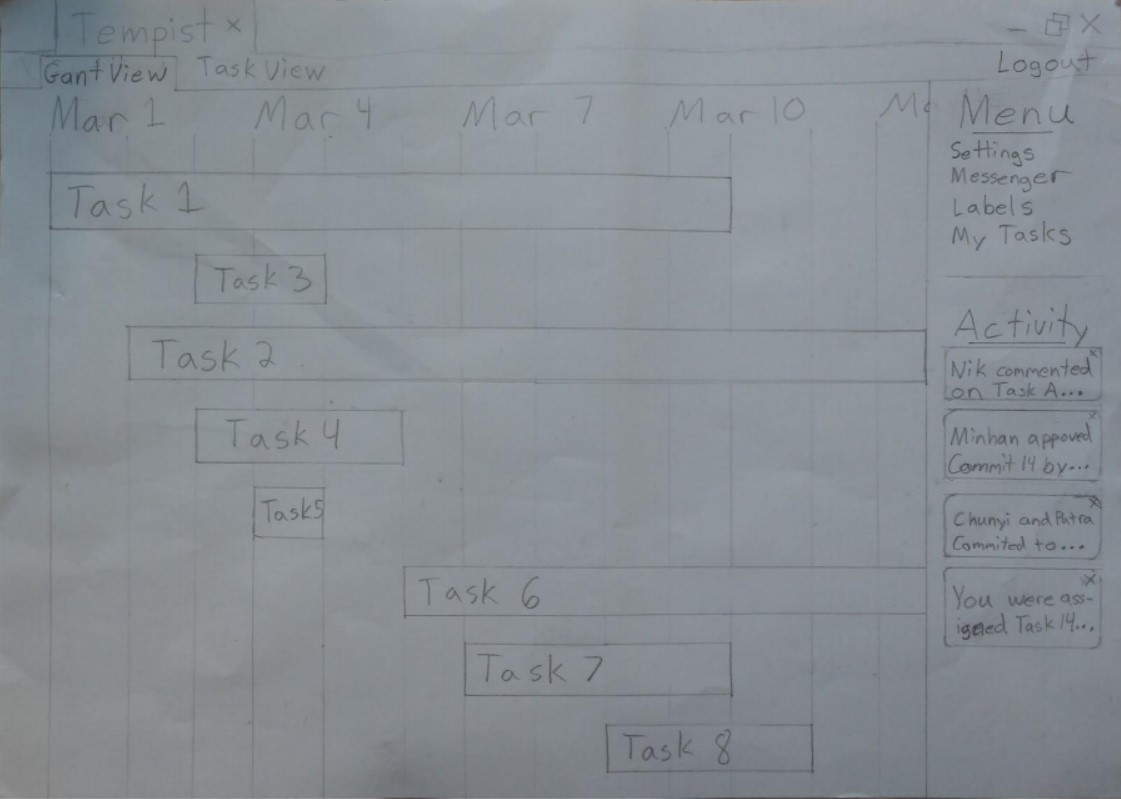 Tempist x
Logout
Gant View Task View
Mar 1 Mar 4 Mar 7 Mar 10 Ma
Task 1
Task 3
Task 2
Task 4
Task5
Task 6
Task 7
Task 8
Menu
Settings
Messenger
Labels
My Tasks
Activity
Nik commented
on Task A...
Minhan appoved
Commit 14 by...
Chunyi and Patra
Commited to...
You were ass-
igned Task 14...